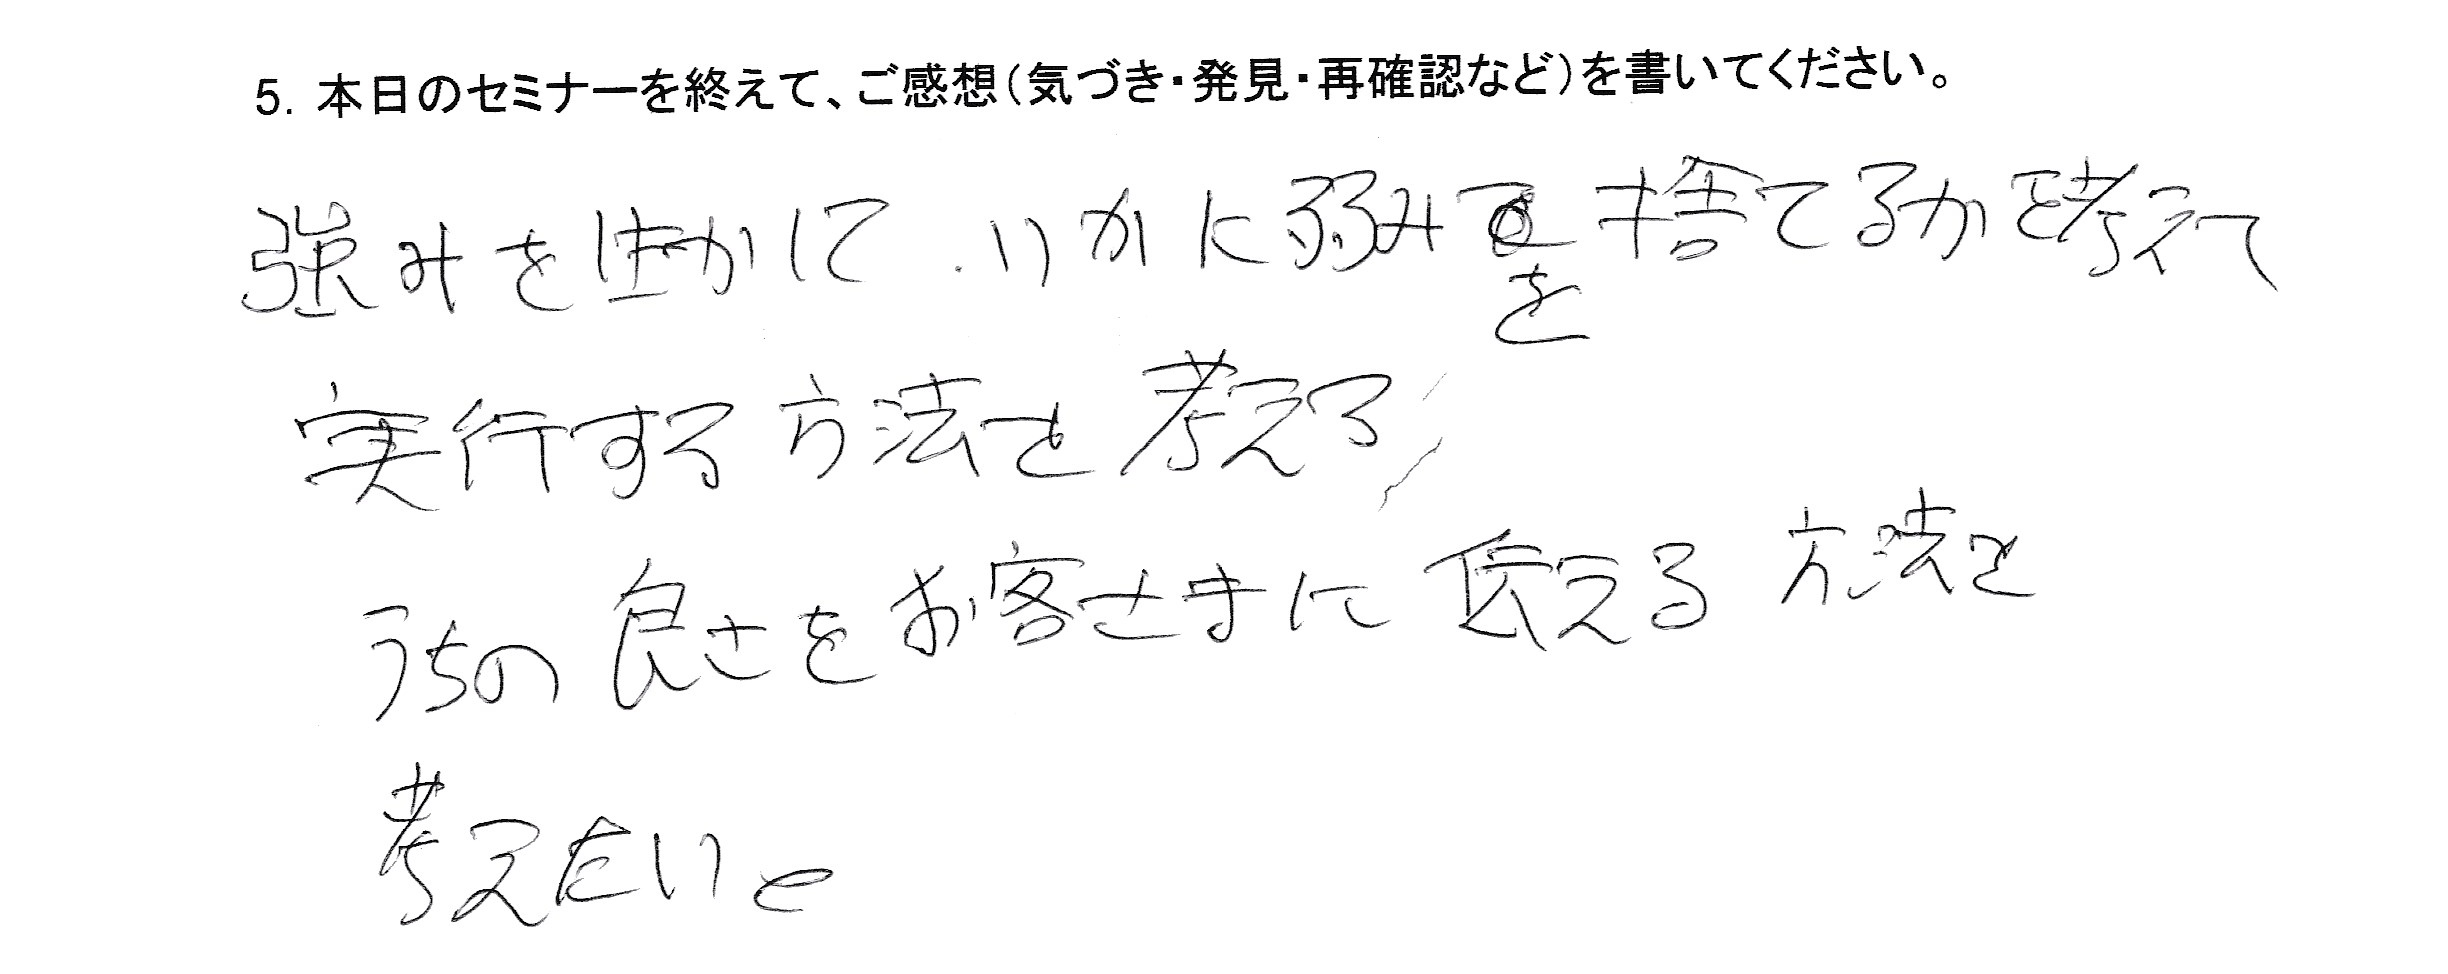 5. 本日のセミナーを終えて、ご感想(気づき・発見・再確認など)を書いてください。
強みを生かして、いかに弱みを捨てるかを考えて
実行する方法を考える
うちの良さをお客さまに伝える方法を
考えたいと